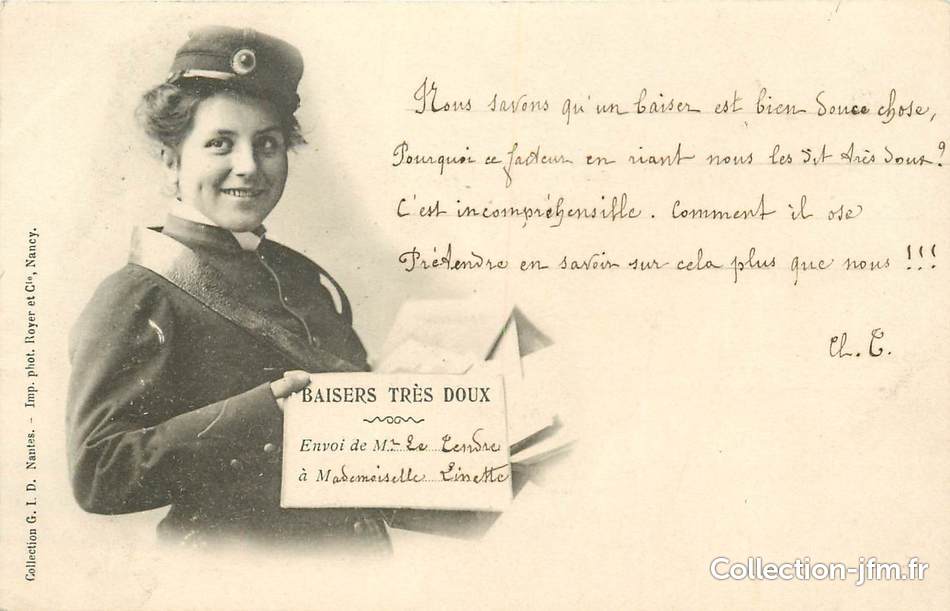 Nous savons qu'un baiser est bien douce chose,
Pourquoi ce facteur en riant nous les dit très doux?
C'est incompréhensible. Comment il ose
Prétendre en savoir sur cela plus que nous!!!
Ch. T.
BAISERS TRÈS DOUX
Envoi de Mr Le Tendre
à Mademoiselle Linette
Collection G. I. D. Nantes. - Imp. phot. Royer et Cie, Nancy.
Collection-jfm.fr